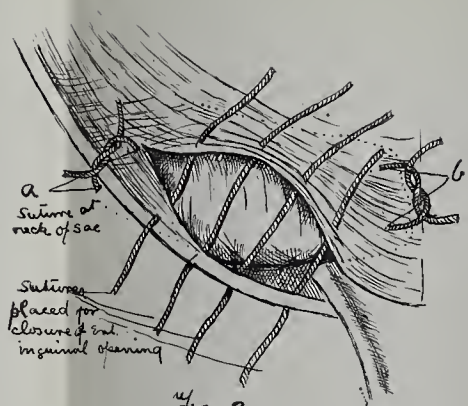 a
Suture at
neck of sac
b
Sutures
placed for
closure of Ext.
inguinal opening